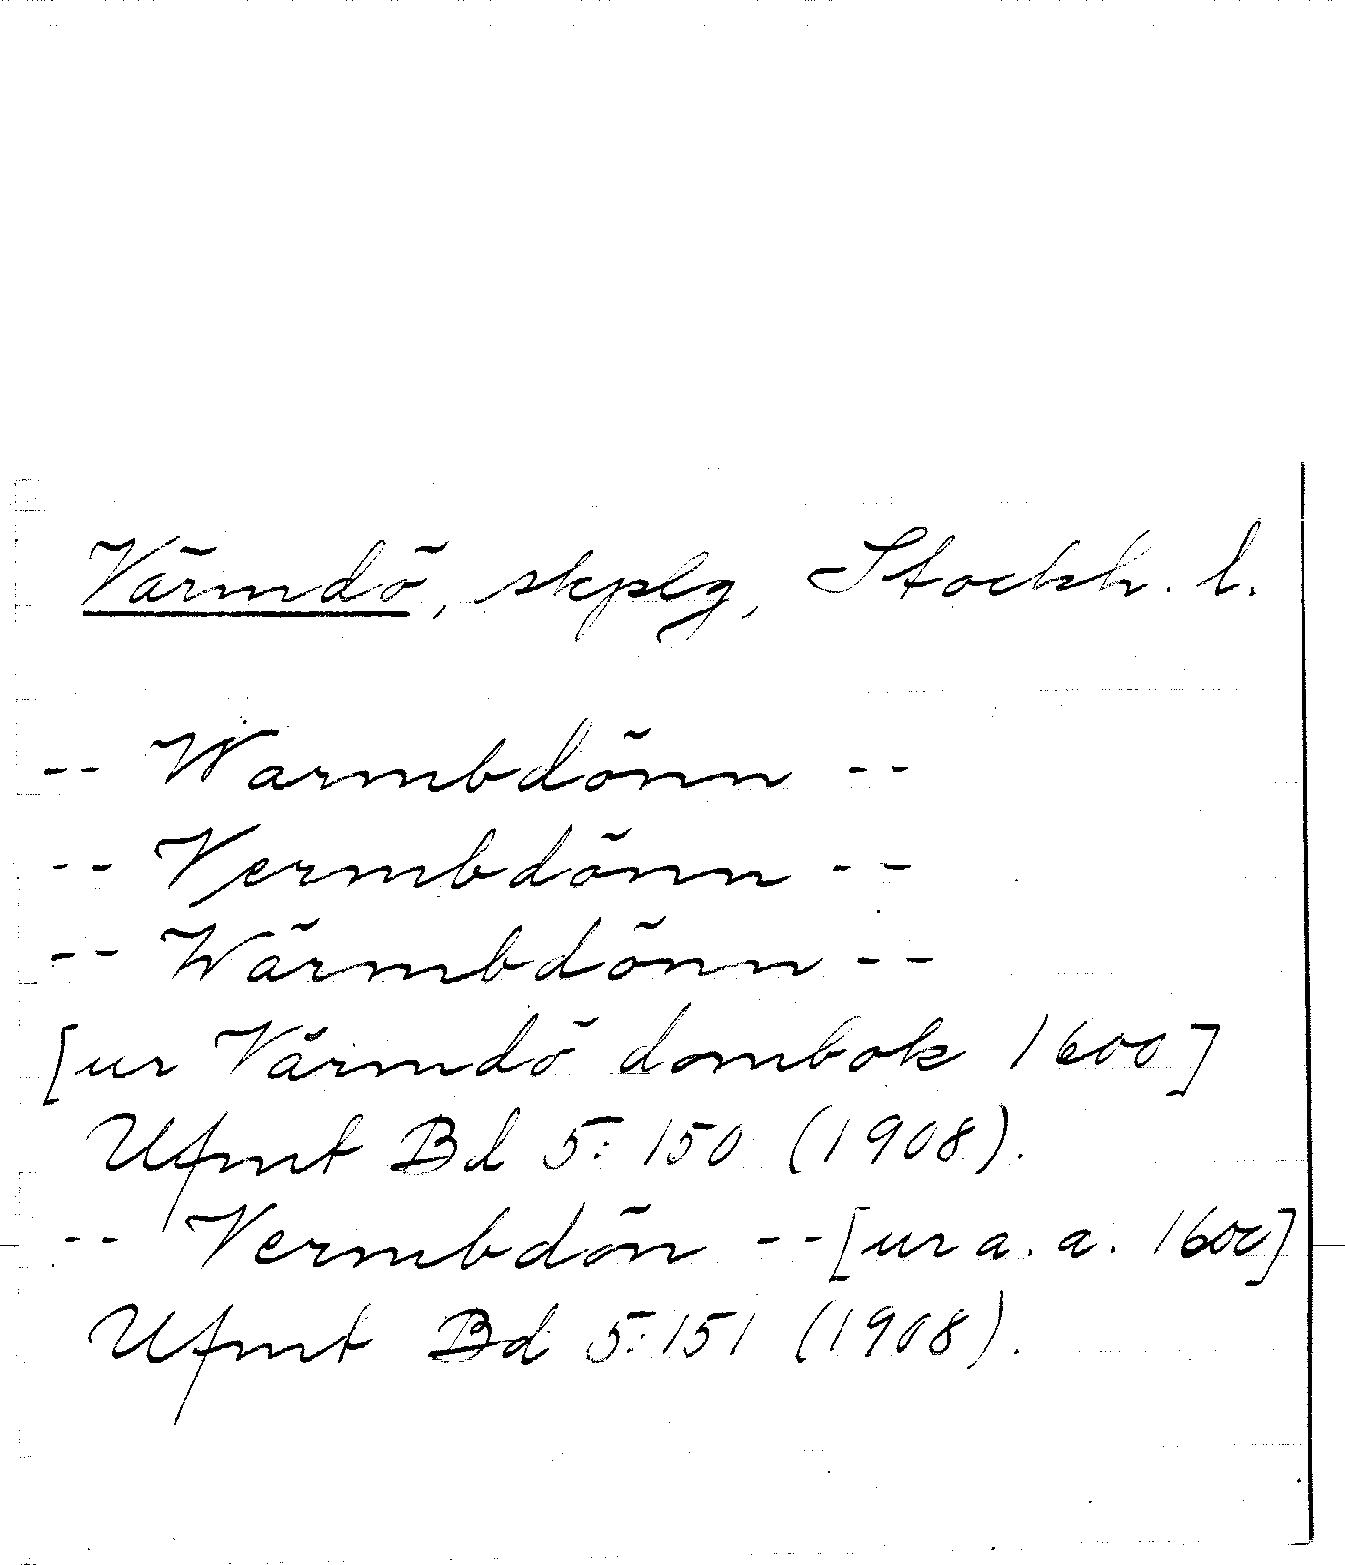 Värmdö, skplg, Stockh. l.
-- Warmbdönn --
-- Vermbdönn --
-- Wärmbdönn --
[ur Värmdö dombok 1600]
Ufmt Bd 5:150 (1908).
-- Vermbdön -- [ur a. a. 1600]
Ufmt Bd 5:151 (1908).